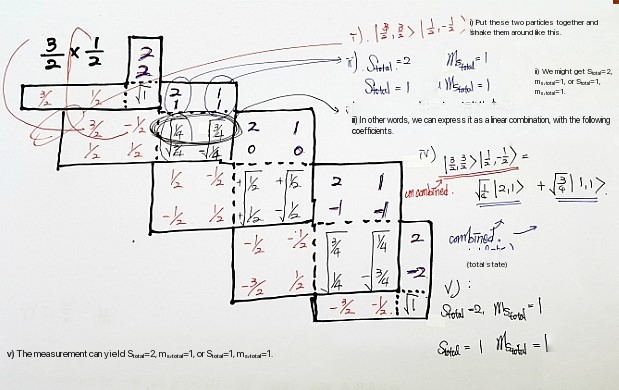 3/2 × 1/2
2
2
3/2 1/2 √1 2 1
1 1
3/2 -1/2 √1/4 √3/4 2 1
1/2 1/2 √3/4 -√1/4 0 0
1/2 -1/2 +√1/2 +√1/2 2 1
-1/2 1/2 +√1/2 -√1/2 -1 -1
-1/2 -1/2 √3/4 √1/4 2
-3/2 1/2 √1/4 -√3/4 -2
-3/2 -1/2 √1
i). |3/2, 3/2> |1/2, -1/2>
i) Put these two particles together and
shake them around like this.
ii). Stotal = 2 mstotal = 1
Stotal = 1 mstotal = 1
ii) We might get Stotal=2,
ms,total=1, or Stotal=1,
ms,total=1.
iii) In other words, we can express it as a linear combination, with the following
coefficients.
iv) |3/2, 3/2> |1/2, -1/2> =
uncombined. √1/4 |2,1> + √3/4 |1,1>.
combined.
(total state)
v) :
Stotal=2, mstotal = 1
Stotal = 1 mstotal = 1
v) The measurement can yield Stotal=2, ms,total=1, or Stotal=1, ms,total=1.